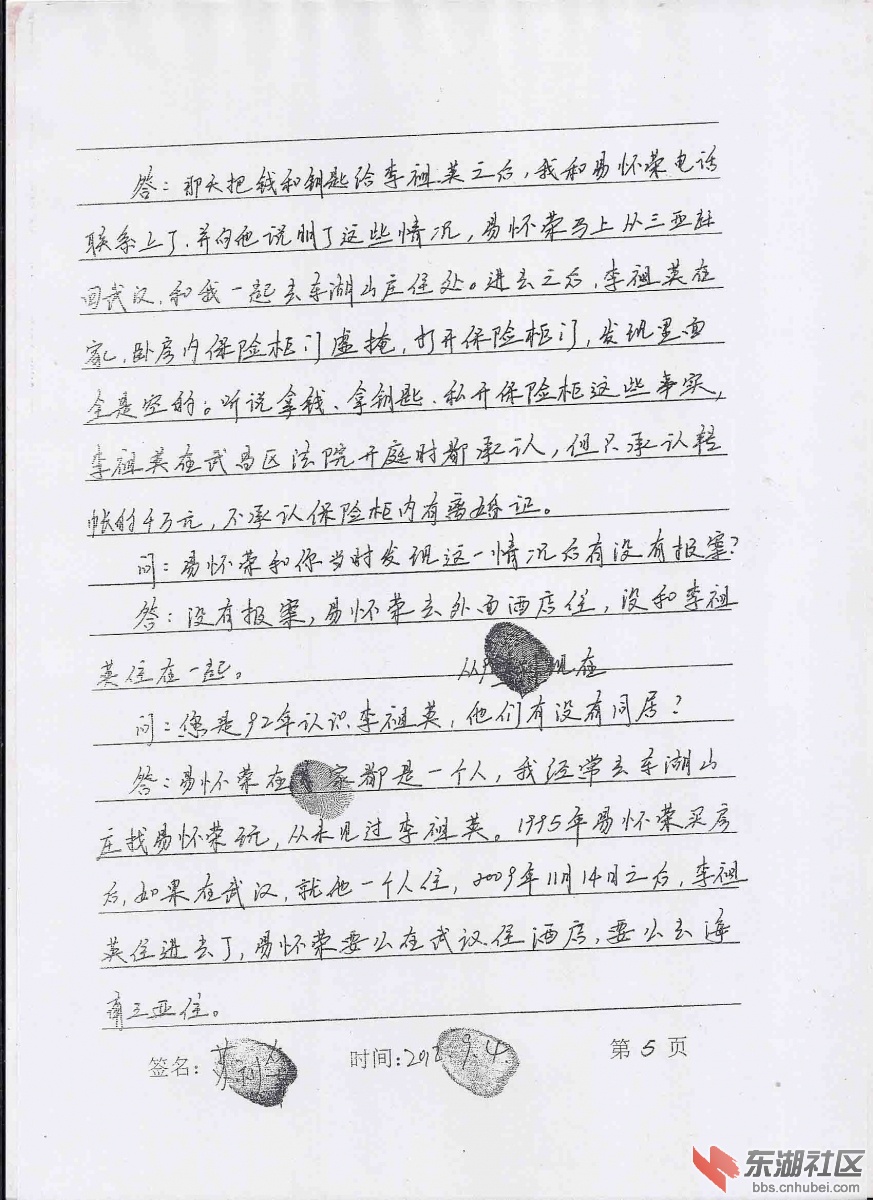 答：那天把钱和钥匙给李祖英之后，我和易怀荣电话
联系上了.并向他说明了这些情况，易怀荣马上从三亚赶
回武汉，和我一起去东湖山庄住处。进去之后，李祖英在
家，卧房内保险柜门虚掩，打开保险柜门，发现里面
全是空的。听说拿钱、拿钥匙、私开保险柜这些事实，
李祖英在武昌区法院开庭时都承认，但只承认转
帐的4万元，不承认保险柜内有离婚证。
问：易怀荣和你当时发现这一情况后有没有报案？
答：没有报案，易怀荣去外面酒店住，没和李祖
英住在一起。
从 现在
问：您是92年认识李祖英，他们有没有同居？
答：易怀荣在 家都是一个人，我经常去东湖山
庄找易怀荣玩，从未见过李祖英。1995年易怀荣买房
后，如果在武汉，就他一个人住，2009年11月14日之后，李祖
英住进去了，易怀荣要么在武汉住酒店，要么去海
南三亚住。
签名： 时间：201 9.4. 第5页
东湖社区
bbs.cnhubei.com